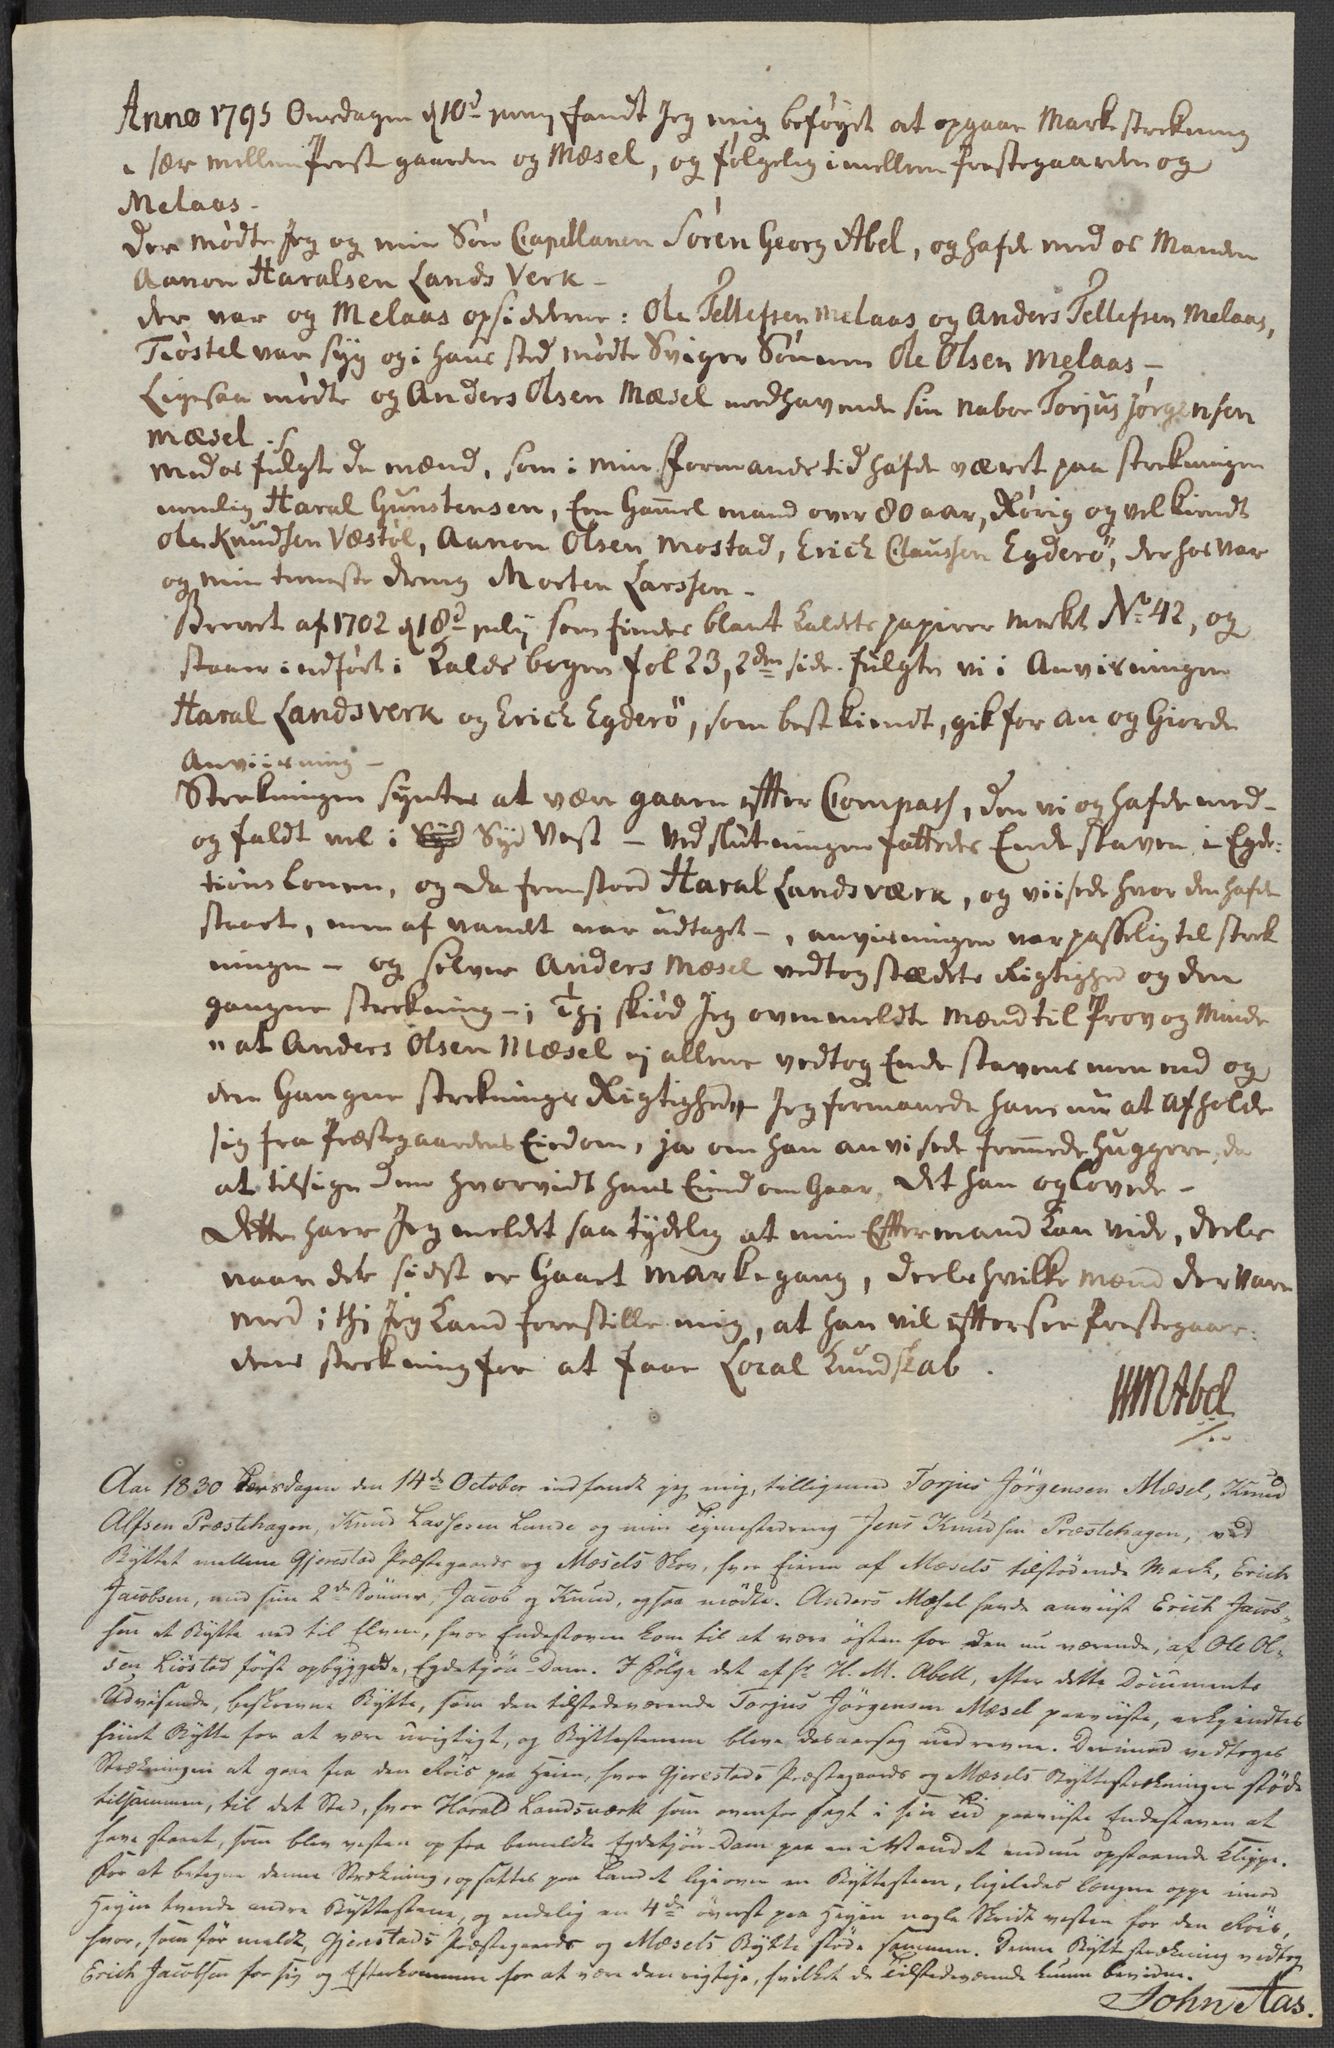 Anno 1795 Onsdagen d 10d juny fandt Jeg mig beføyet at opgaae Markestrekning
i sær mellem Præstgaarden og Mæsel, og følgelig imellem Præstegaarden og
Melaas -
Der mødte Jeg og min Søn Capellanen Søren Georg Abel, og hafde med os Manden
Aanon Haralsen Lands Verk -
der var og Melaas opsidderne: Ole Tellefsen Melaas og Anders Tellefsen Melaas,
Tiøstel var syg og i hans sted mødte Sviger Sønnen Ole Olsen Melaas -
Ligesaa mødte og Anders Olsen Mæsel medhavende sin nabor Torjus Jørgensen
Mæsel.
Med os fulgte de mænd, som i min Formands tid hafde været paa strekningen
nemlig Haral Gunstensen, Een Gammel mand over 80 aar, Rørig og vel kiendt
Ole Knudsen Væstøl, Aanon Olsen Mostad, Erich Claussen Egderø, der hos var
og min tieneste dreng Morten Larssen -
Brevet af 1702 d 18d july som findes blant Kaldets papirer merkt No 42, og
staaer indført i Kalds bogen fol 23, 2den side fulgte vi i Anvisningen
Haral Landsverk og Erich Egderø, som best kiendt, gik for an og Giorde
Anviisning -
Strekningen syntes at være gaaen efter Compass, den vi og hafde med -
og faldt vel i Syd Syd Vest - ved slutningen fattedes Ende staven i Egde-
tiøns Lonen, og da fremstod Haral Landsværk, og viisede hvor den hafde
staaet, men af vandet var udtaget -, anvisningen var passelig til strek
ningen - og selver Anders Mæsel vedtog stædets Rigtighed og den
gangne strekning -; Thi skiød Jeg ovenmeldte Mænd til Prov og Minde
" at Anders Olsen Mæsel ej allene vedtog Ende stavens men end og
den Gangne streknings Rigtighed" Jeg formaaede ham nu at afholde
sig fra Præstegaardens Eiedom, ja om han anvisede fremmede huggere, da
at tilsige dem hvorvidt hans Eiendom Gaar, det han og Lovede -
Dette harr Jeg meldet saa tydelig at min Efftermand kan vide, deels
naar det sidst er Gaaet Markegang, deels hvilke mænd der vare
med; thi Jeg kand forestille mig, at han vil efftersee Præstegaar-
dens strekning for at faae Local Kundskab.
HMAbel
Aar 1830 Torsdagen den 14de October indfandt jeg mig, tilligemed Torjus Jörgensen Mæsel, Knud
Alfsen Præstehagen, Knud Lassesen Lunde og min Tjenestedreng Jens Knudsen Præstehagen, ved
Byttet mellem Gjerestad Præstegaards og Mæsels Skov, hvor Eieren af Mæsels tilstødende Mark, Erich
Jacobsen, med sine 2de Sönner, Jacob og Knud, ogsaa mödte. Anders Mæsel havde anviist Erich Jacob-
sen et Bytte ned til Elven, hvor Endestaven kom til at være östen for den nu værende, af Ole Ol-
sen Liöstad först opbyggede, Egdetjön-Dam. I Fölge det af H. M. Abell, efter dette Documents
Udvisende, beskrevne Bytte, som den tilstedeværende Torjus Jörgensen Mæsel paaviiste, erkjendtes
hiint Bytte for at være urigtigt, og Byttestenene bleve desaarsag nedrevne. Derimod vedtoges
Strækningen at gaae fra den Röis paa Heien, hvor Gjerestads Præstegaards og Mæsels Byttestrækninger støde
tilsammen, til det Sted, hvor Harald Landsværk som ovenfor sagt i sin Tid paaviiste Endestaven at
have staaet, som blev vesten op fra bemeldte Egdetjön-Dam paa en i Vandet endnu opstaaende Klippe.
For at betegne denne Strækning, opsattes paa Landet ligeover en Byttesteen, ligeledes længere oppe imod
Heyen tvende andre Byttestene, og endelig en 4de överst paa Heyen nogle Skridt vesten for den Röis,
hvor, som för meldt, Gjerestads Præstegaards og Mæsels Bytte støde sammen. Denne Byttestrækning vedtog
Erich Jacobsen for sig og Efterkommere for at være den rigtige, hvilket de Tilstedeværende kunne bevidne.
John Aas.